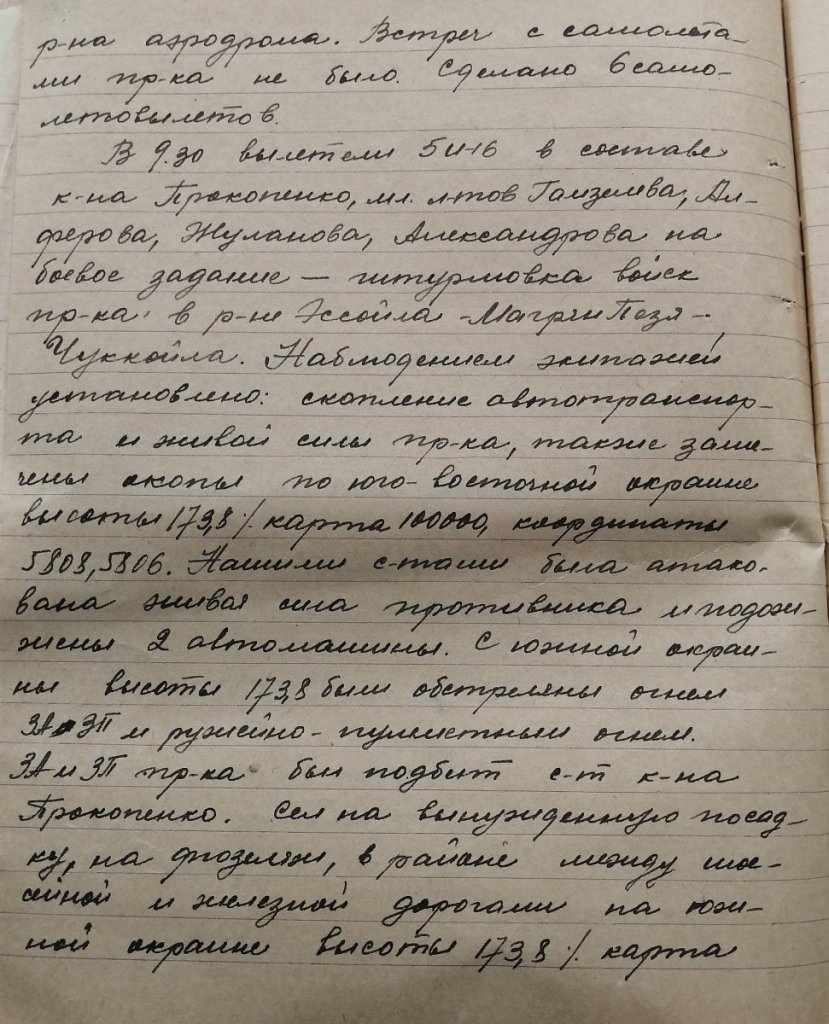 р-на аэродрома. Встреч с самолета-
ми пр-ка не было. Сделано 6 само-
летовылетов.
В 9.30 вылетели 5 И-16 в составе
к-на Прокопенко, мл. л-тов Гаизелева, Ал-
ферова, Жуланова, Александрова на
боевое задание — штурмовка войск
пр-ка в р-не Эссойла - Магрчи Пезя -
Чуккойла. Наблюдением экипажей
установлено: скопление автотранспор-
та и живой силы пр-ка, также заме-
чены окопы по юго-восточной окраине
высоты 173,8 /. карта 100000, координаты
5808, 5806. Нашими с-тами была атако-
вана живая сила противника и подож-
жены 2 автомашины. С южной окраи-
ны высоты 173,8 были обстреляны огнем
ЗА и ЗП и ружейно-пулеметным огнем.
ЗА и ЗП пр-ка был подбит с-т к-на
Прокопенко. Сел на вынужденную посад-
ку, на фюзеляж, в районе между шос-
сейной и железной дорогами на юж-
ной окраине высоты 173,8 /. карта